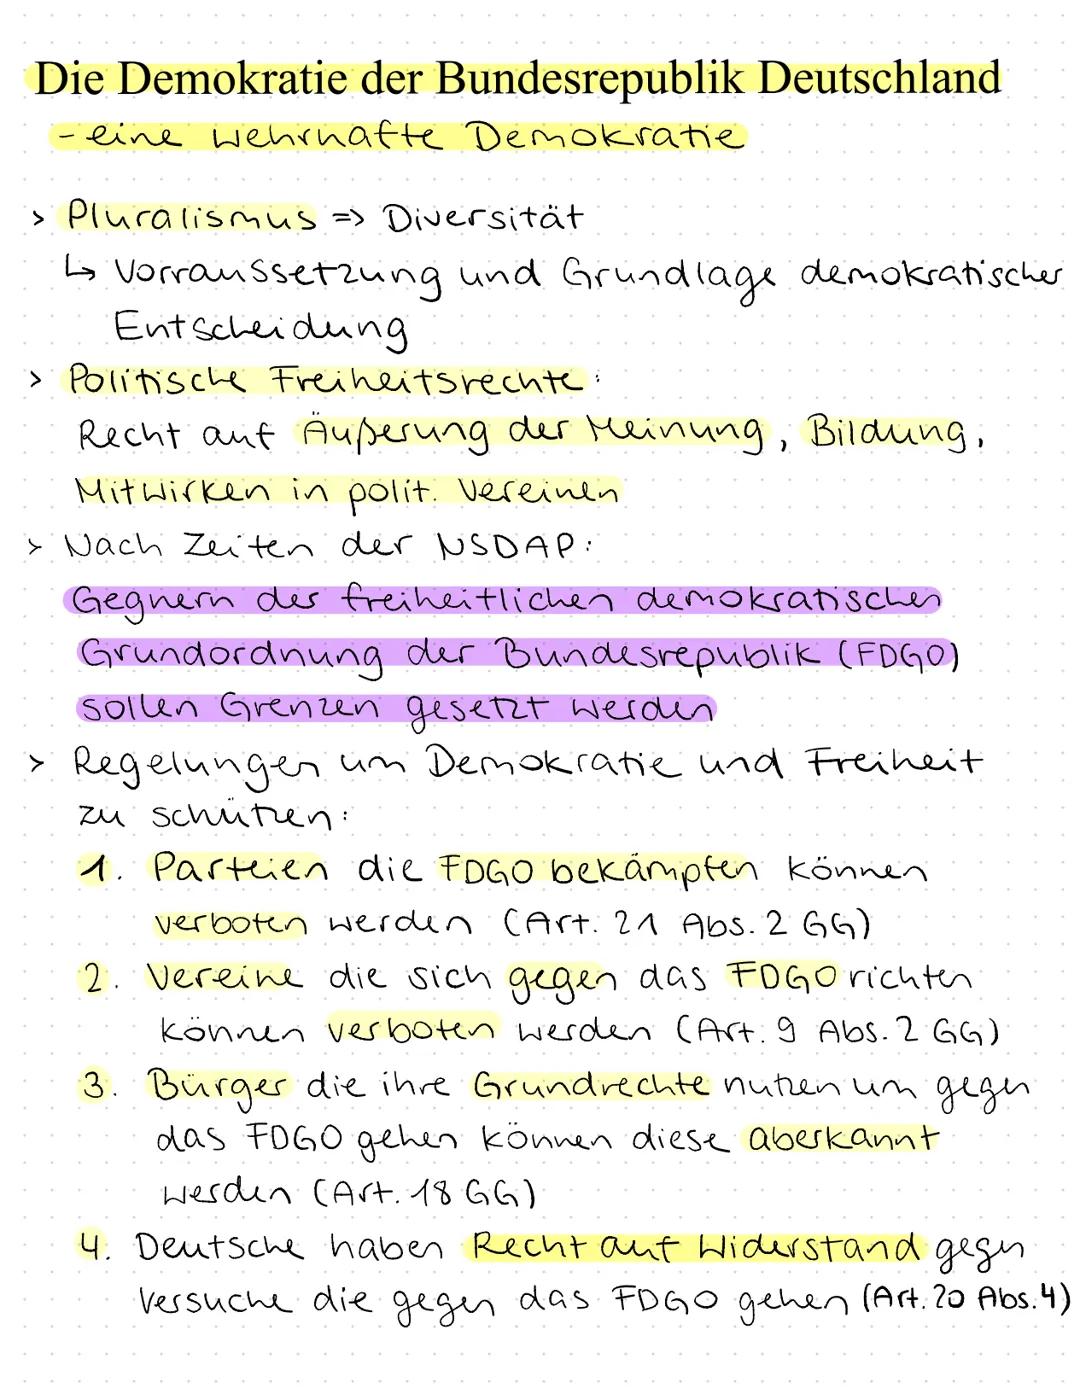 Die Demokratie der Bundesrepublik Deutschland
- eine wehrhafte Demokratie
> Pluralismus => Diversität
↳ Vorraussetzung und Grundlage demokratischer
Entscheidung
> Politische Freiheitsrechte:
Recht auf Äußerung der Meinung, Bildung,
Mitwirken in polit. Vereinen
> Nach Zeiten der NSDAP:
Gegnern der freiheitlichen demokratischen
Grundordnung der Bundesrepublik (FDGO)
sollen Grenzen gesetzt werden
> Regelungen um Demokratie und Freiheit
zu schützen:
1. Parteien die FDGO bekämpfen können
verboten werden (Art. 21 Abs. 2 GG)
2. Vereine die sich gegen das FDGO richten
können verboten werden (Art. 9 Abs. 2 GG)
3. Bürger die ihre Grundrechte nutzen um gegen
das FDGO gehen können diese aberkannt
werden (Art. 18 GG)
4. Deutsche haben Recht auf Widerstand gegen
Versuche die gegen das FDGO gehen (Art. 20 Abs. 4)